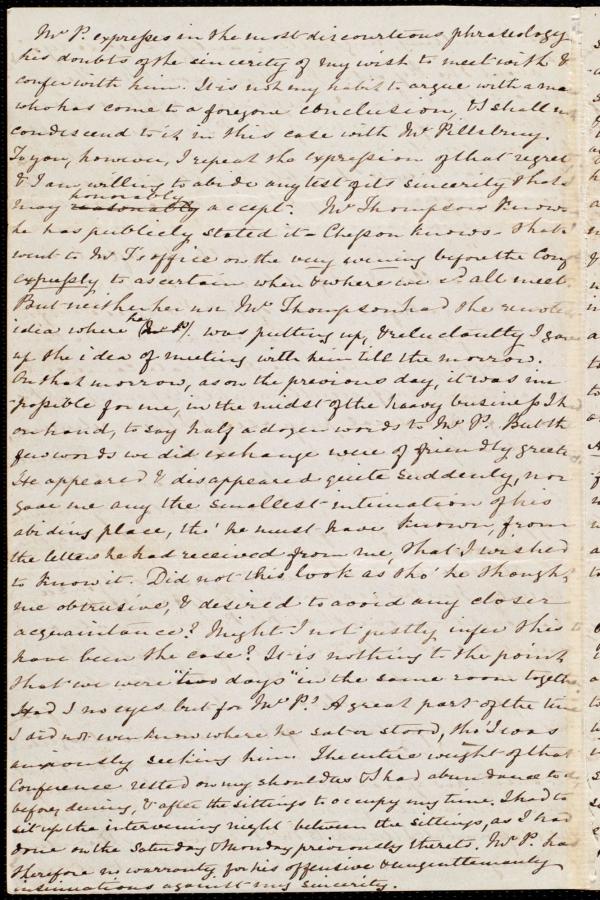 Mr P. expresses in the most discourteous phraseology
his doubts of the sincerity of my wish to meet with &
confer with him. It is not my habit to argue with a ma
who has come to a foregone conclusion, & I shall n
condescend to it in this case with Mr Pillsbury.
To you, however, I repeat the expression of that regret
& I am willing to abide any test of its sincerity that
may honorably accept. Mr Thompson knows
he has publicly stated it - Chesson knows - that
went to Mr T's office on the very evening before the Conf
expressly to ascertain when & where we cd all meet.
But neither he nor Mr Thompson had the remote
idea where he (Mr P). was putting up, & reluctantly I gave
up the idea of meeting with him till the morrow.
On that morrow, as on the previous day, it was im
-possible for me, in the midst of the heavy business I h
on hand, to say half a dozen words to Mr P. But th
few words we did exchange were of friendly greet
He appeared & disappeared quite suddenly, nor
gave me any the smallest intimation of his
abiding place, tho' he must have known, from
the letters he had received from me, that I wished
to know it. Did not this look as tho' he though
me obtrusive, & desired to avoid any closer
acquaintance? Might I not justly infer this t
have been the case? It is nothing to the point
that we were "two days" in the same room togeth
Had I no eyes but for Mr P? A great part of the time
I did not even know where he sat or stood, tho' I was
anxiously seeking him. The entire weight of that
Conference rested on my shoulders & I had abundance to d
before, during, & after the sittings to occupy my time. I had to
sit up the intervening night between the sittings, as I had
done on the Saturday & Monday previously thereto. Mr P. has
therefore no warranty for his offensive & ungentlemanly
insinuations against my sincerity.